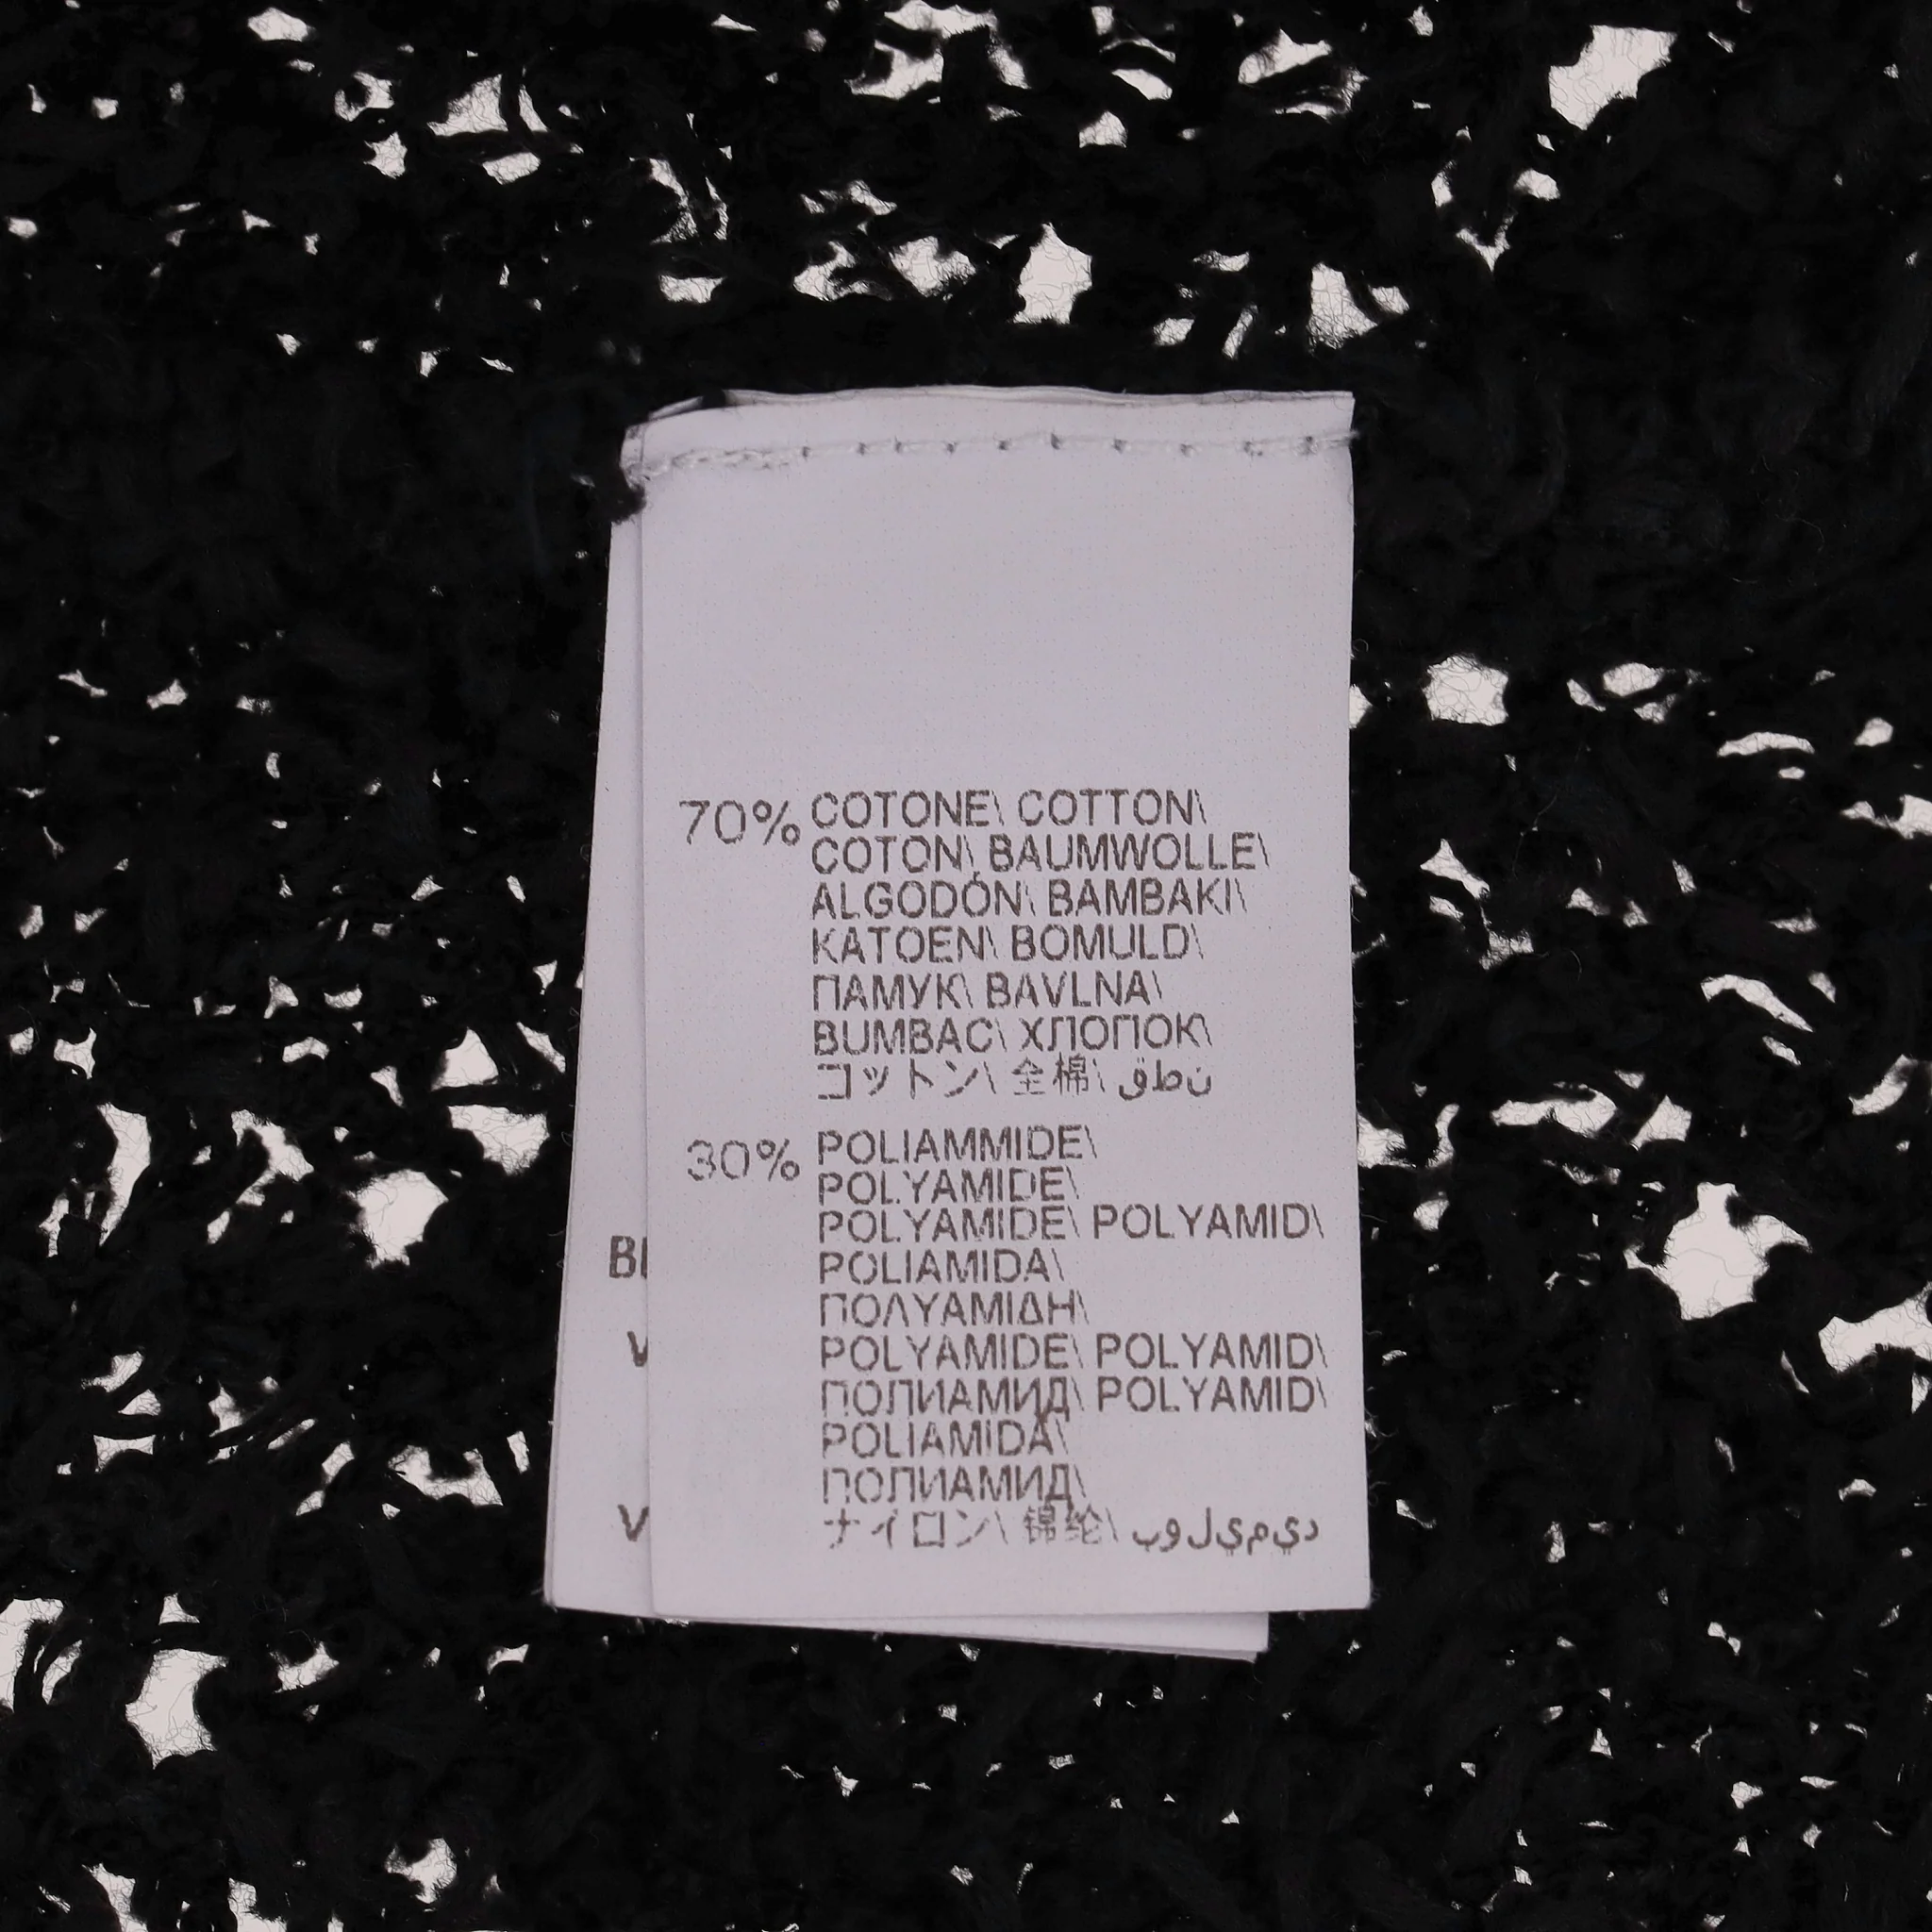 70% COTONE\ COTTON\
COTON\ BAUMWOLLE\
ALGODÓN\ BAMBAKI\
KATOEN\ BOMULD\
ПАМУК\ BAVLNA\
BUMBAC\ ХЛОПОК\
コットン\ 全棉\ قطن
30% POLIAMMIDE\
POLYAMIDE\
POLYAMIDE\ POLYAMID\
POLIAMIDA\
ΠΟΛΥΑΜΙΔΗ\
POLYAMIDE\ POLYAMID\
ПОЛИАМИД\ POLYAMID\
POLIAMIDA\
ПОЛИАМИД\
ナイロン\ 锦纶\ بوليميد